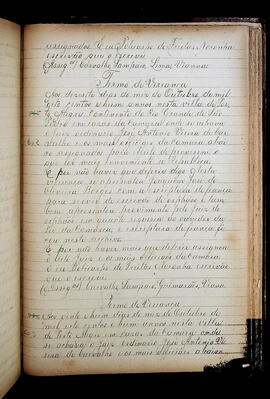 assignados. Eu Policarpo de Freitas Noronha
escrivão que o escrevi
(Assig.) Carvalho, Sampaio, Lima, Vianna
Termo de Vereança
Aos dezoito dias do mez de Outubro de mil
oito centos e hum annos nesta villa de Por-
to Alegre Continente do Rio Grande de São
Pedro em cazas da Camara onde se achava o
o juiz ordinario José Antonio Vieira de Car-
valho e os mais officiaes da Camara abai-
xo assignados para effeito de proverem o
que for mais conveniente a Republica
E por não haver que deferir digo
vereança se aprezentou Joaquim José de
Oliveira Borges com a escriptura de fiança
para servir de escrivão de orphãos e tam-
bem aprezentou provimento pelo juiz de
orphãos em quanto
Comarca, e escriptura de fiança fi-
cou neste archivo.
E por não haver mais que deferir assignou
o dito Juiz e os mais officiaes da Camara
Eu Policarpo de Freitas Noronha escrivão
que o escrevi
(Assig.) Carvalho, Sampaio, Guimarães, Viana
Termo de Vereança
Aos vinte e hum dias do mez de Outubro de
mil oito centos e hum annos nesta villa
de Porto Alegre em cazas da Camara onde
se achava o juiz ordinario José Antonio Vi-
eira de Carvalho e os mais officiaes abaixo